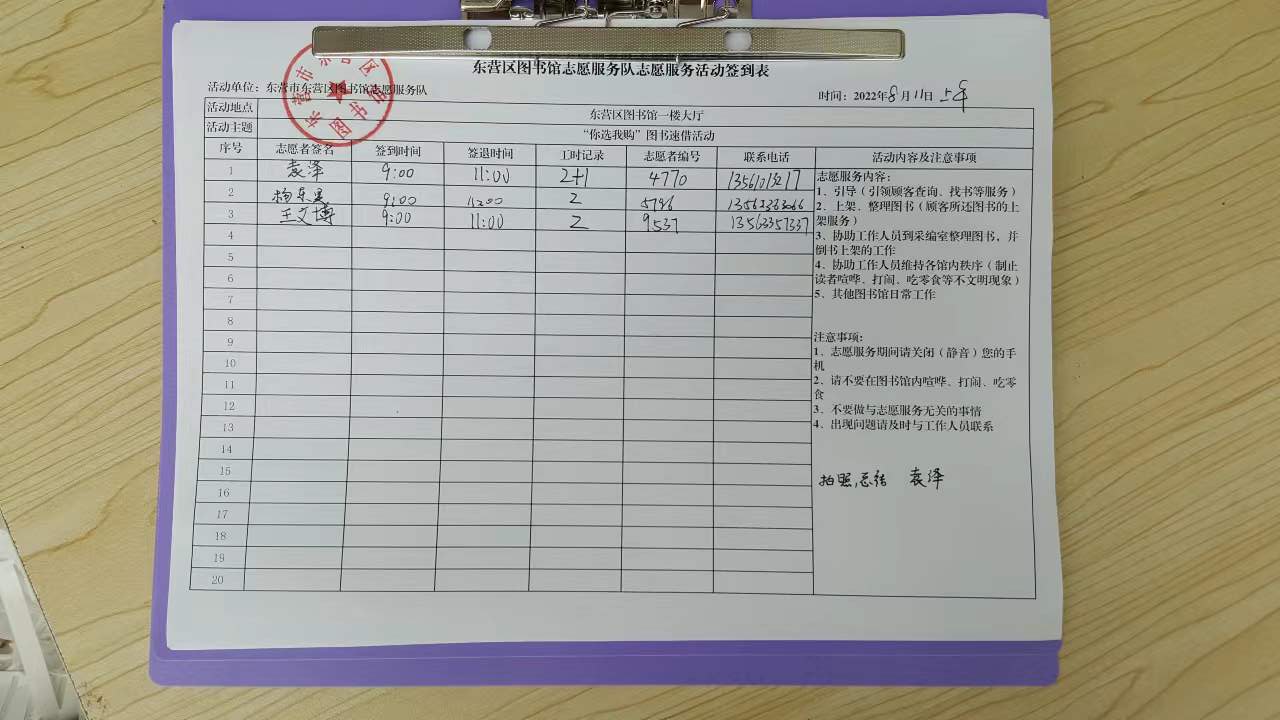 东营区图书馆志愿服务队志愿服务活动签到表
活动单位：东营市东营区图书馆志愿服务队
时间：2022年8月11日 上午
活动地点 东营区图书馆一楼大厅
活动主题 “你选我购”图书速借活动
序号 志愿者签名 签到时间 签退时间 工时记录 志愿者编号 联系电话 活动内容及注意事项
1 袁泽 9:00 11:00 2+1 4770
2 9:00 11:00 2
3 王文博 9:00 11:00 2 9537 13563357337
4
5
6
7
8
9
10
11
12
13
14
15
16
17
18
19
20
志愿服务内容：
1、引导（引领顾客查询、找书等服务）
2、上架、整理图书（顾客所还图书的上
架服务）
3、协助工作人员到采编室整理图书，并
倒书上架的工作
4、协助工作人员维持各馆内秩序（制止
读者喧哗、打闹、吃零食等不文明现象）
5、其他图书馆日常工作
注意事项：
1、志愿服务期间请关闭（静音）您的手
机
2、请不要在图书馆内喧哗、打闹、吃零
食
3、不要做与志愿服务无关的事情
4、出现问题请及时与工作人员联系
拍照,总结 袁泽